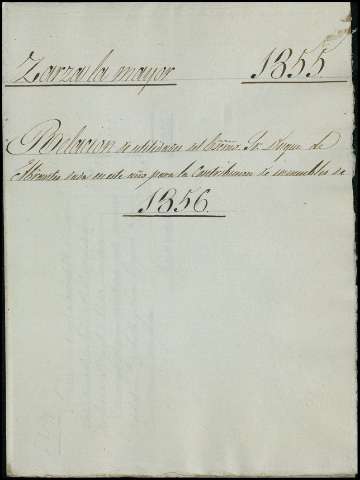 Zarza la mayor 1855
Relacion de utilidades del Escmo. Sr. Duque de
Abrantes dada en este año para la Contribucion de inmuebles de
1856.